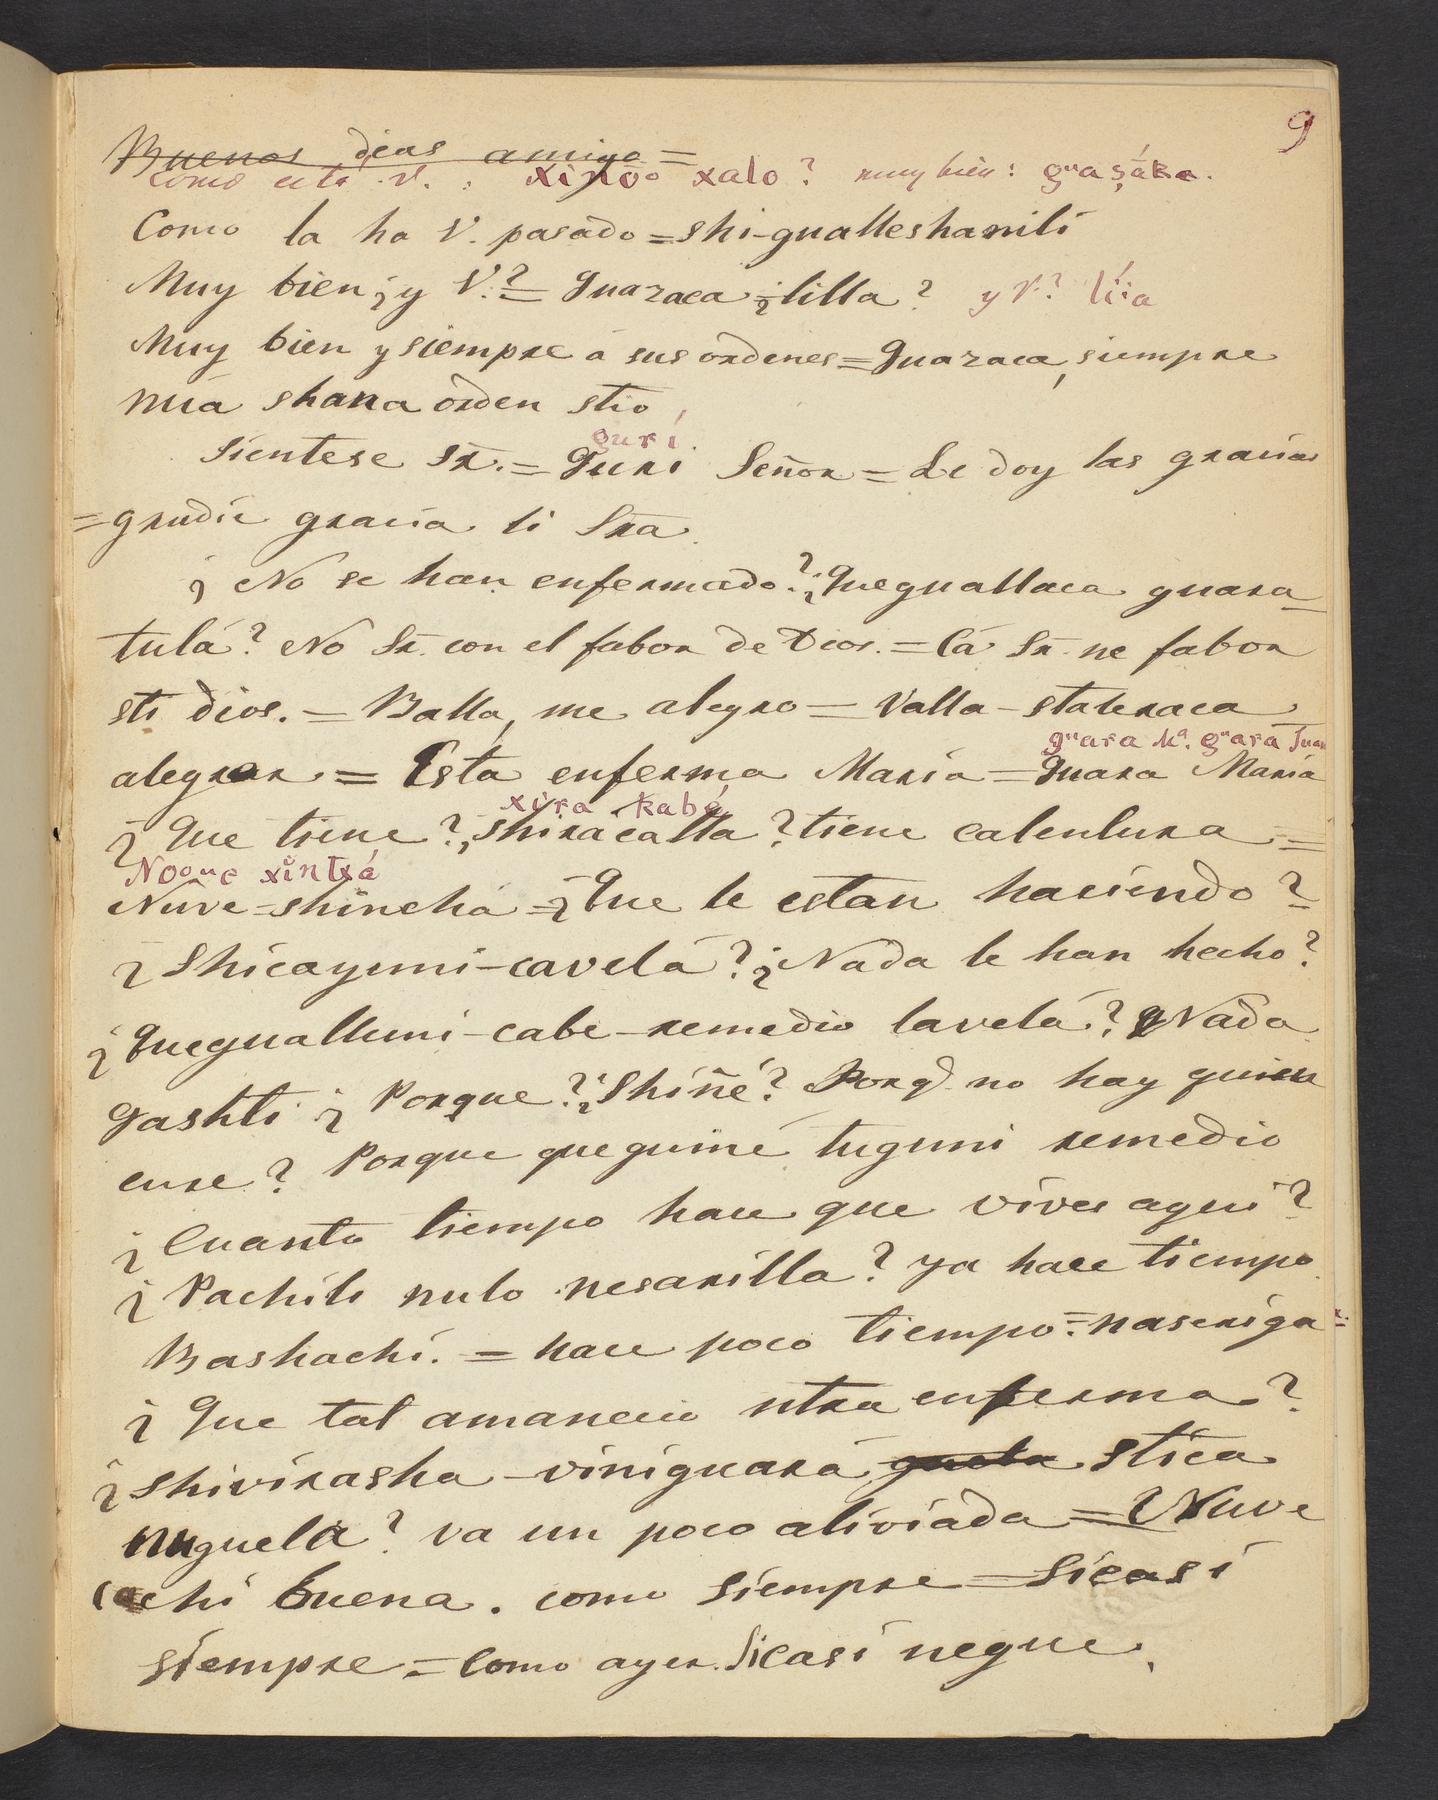 9
Buenos dias amigo =
como está V. : xinoo xalo? muy bien: guaṣáka.
Como la ha V. pasado = shi-gualleshanili
Muy bien ¿y V.? = guazaca ¿lilla? y V.? líia
Muy bien y siempre á sus ordenes = guazaca, siempre
nua shana orden stio
gurí.
Sientese Sr. = Guri Señor = Le doy las gracias
= grudii gracia li Sra.
¿No se han enfermado? = ¿Queguallaca guara-
tulá? No Sr. con el fabor de Dios. = Cá Sr. ne fabor
sti dios. = Balla, me alegro = Valla-staleraca
guara Ma. guara Juan
alegrar = Esta enferma María = Guara María
xira kabé
¿Que tiene? ¿Shiracalla? tiene calentura =
Nooue xintxá
Nuve-shinchá = ¿Que le estan haciendo?
¿Shicayuni-cavelá? ¿Nada le han hecho?
¿Quegualluni-cabe-remedio lavelá? Nada
gashti ¿Porque? ¿Shiñé? Porq. no hay quien
cure? Porque queguiné tuguni remedio
¿Cuanto tiempo hace que vives aqui?
¿Pachili nulo nesarilla? ya hace tiempo
Bashachi. = hace poco tiempo = naseriga
¿Que tal amanecio ntra enferma?
¿Shivirasha-viniguará stica
nuguela? va un poco aliviada = Nuve
cachi buena. como siempre = Sicasi
siempre = como ayer. Sicasi negue.